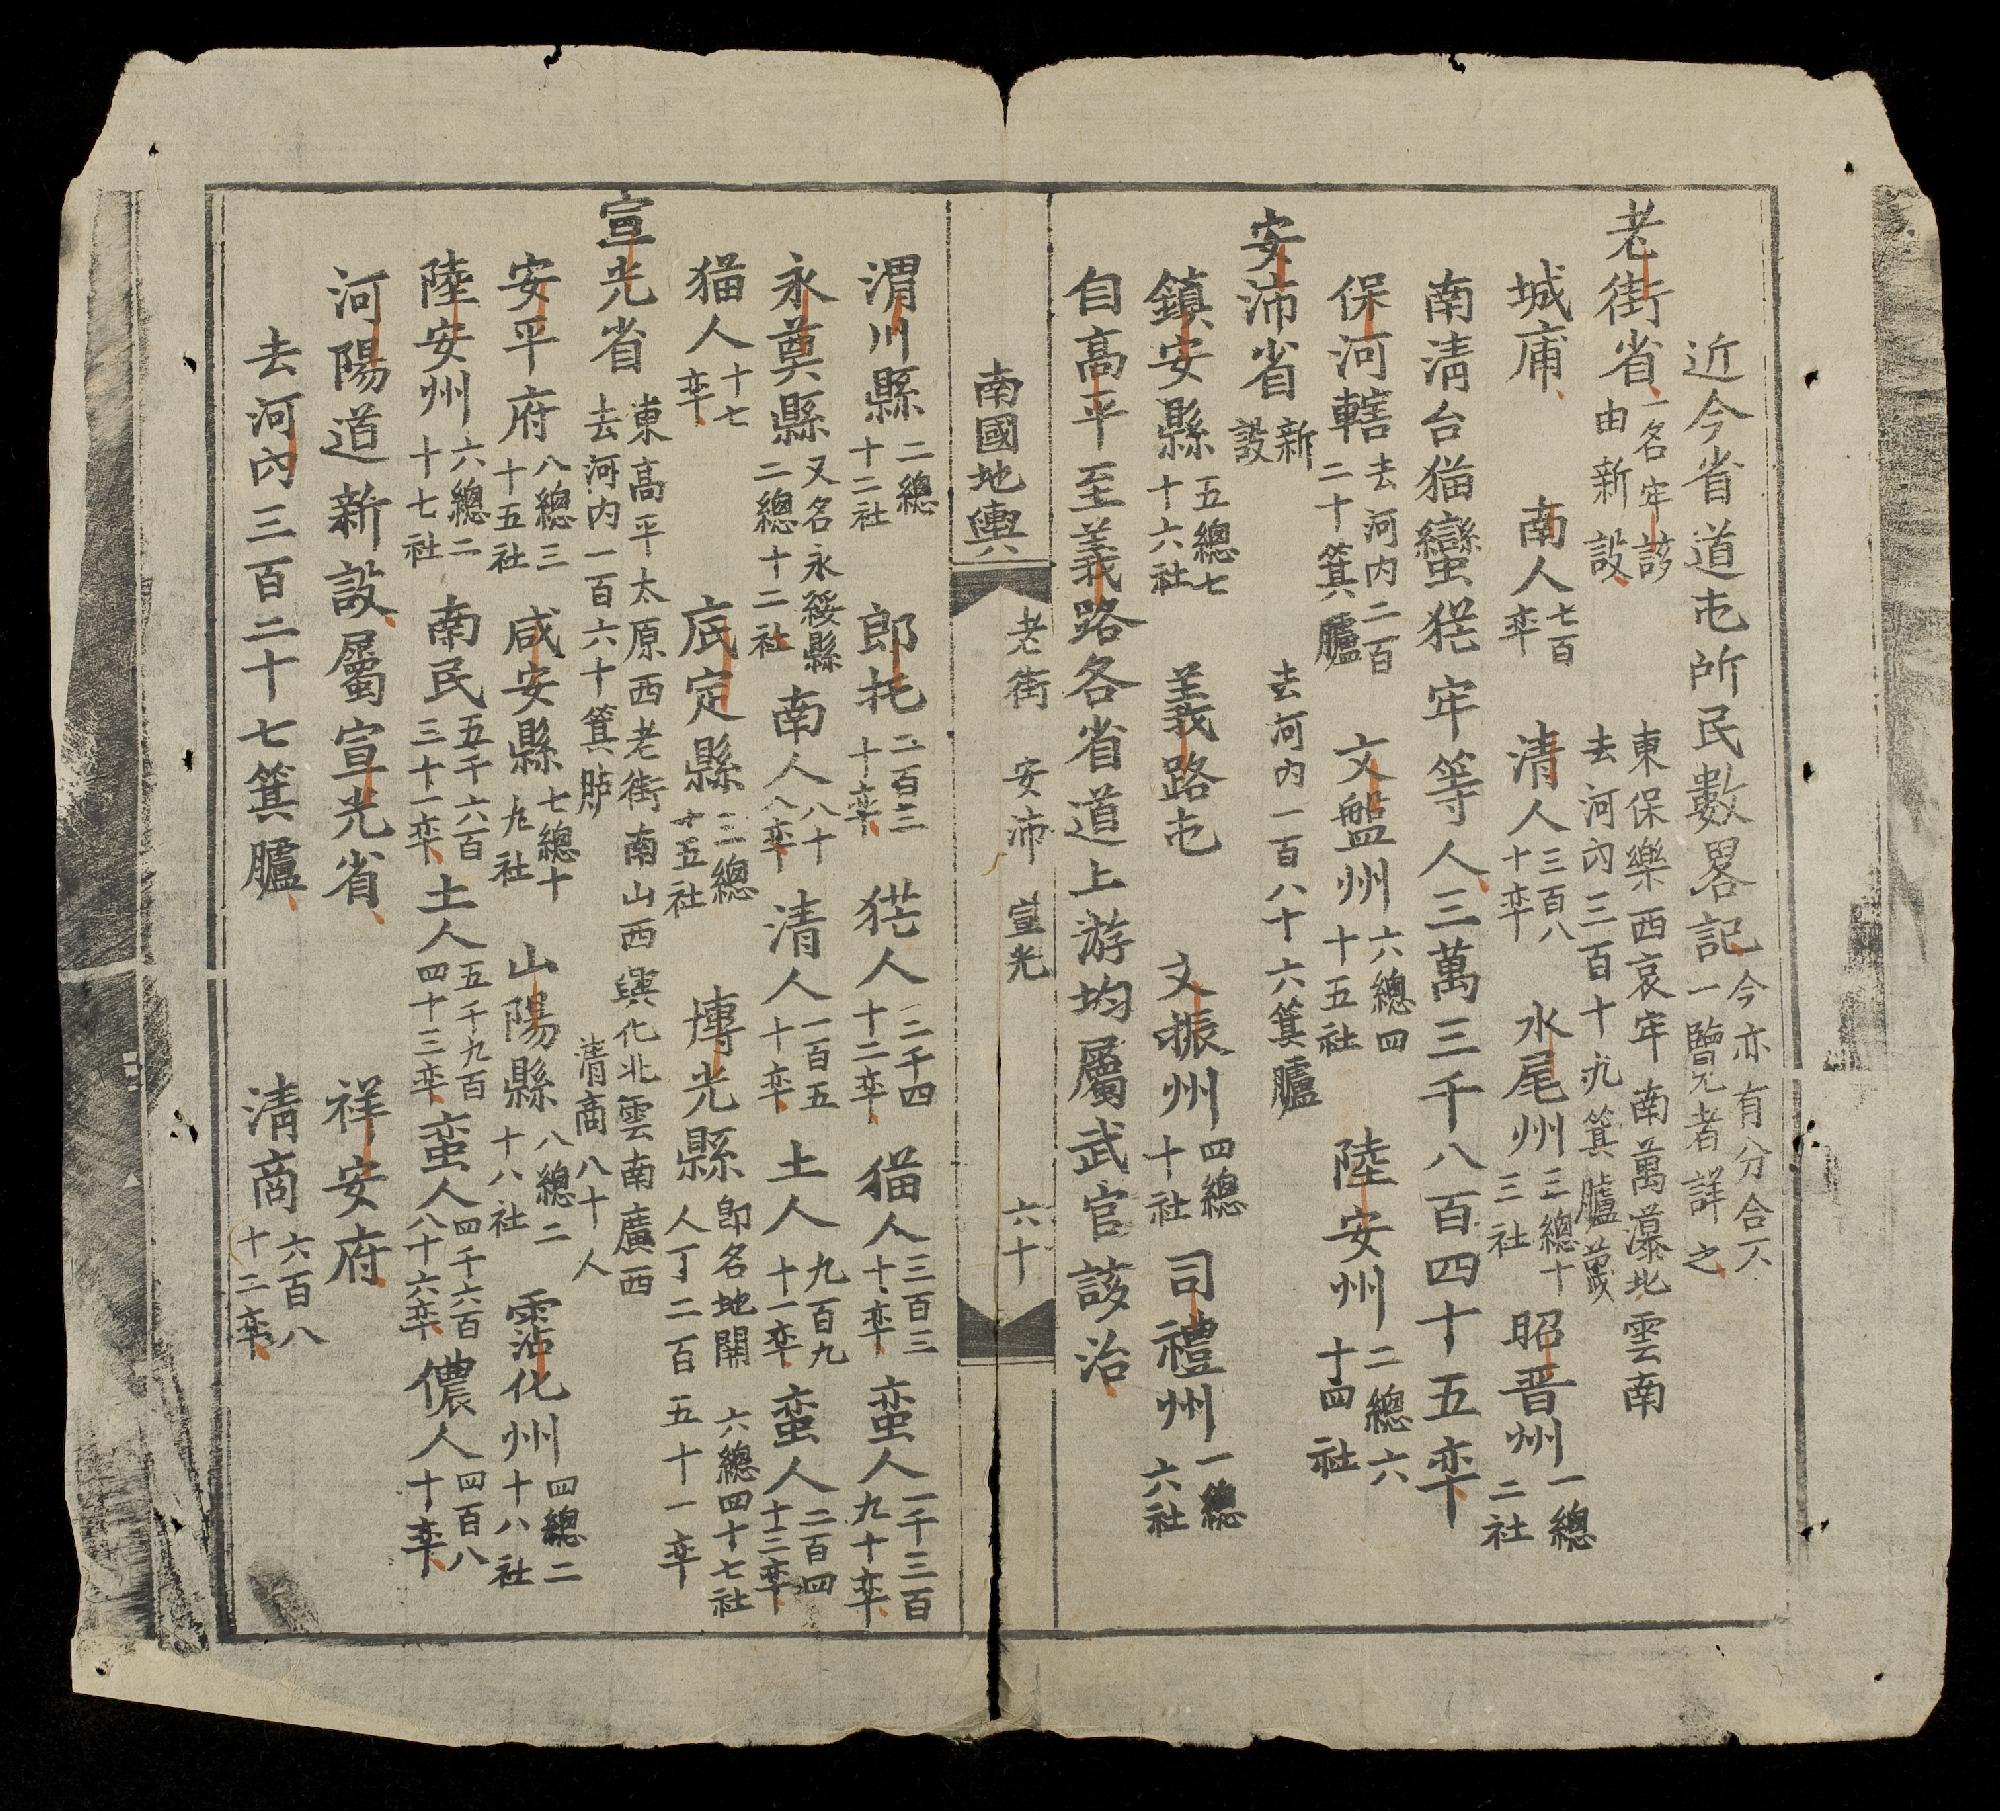 近今省道屯所民數畧記 今亦有分合不一覽者詳之
老街省 一名牢該由新設 東保樂西哀牢南萬瀑北雲南去河內三百十九箕臚
城庸 南人 七百率 清人 三百八十率 水尾州 三總十三社 昭晋州 一總二社
南清台猫蠻狵牢等人三萬三千八百四十五率
保河轄 去河內二百二十箕臚 文盤州 六總四十五社 陸安州 二總六十四社
安沛省 新設 去河內一百八十六箕臚
鎮安縣 五總七十六社 義路屯 文振州 四總十社 司禮州 一總六社
自高平至義路各省道上游均屬武官該治
南國地輿 老街 安沛 宣光 六十
渭川縣 二總十二社 郎托 二百三十率 狵人 三千四十二率 猫人 三百三十率 蛮人 一千三百九十率
永奠縣 又名永綏縣二總十二社 南人 八十八率 清人 一百五十率 土人 九百九十一率 蛮人 二百四十三率
猫人 十七率 底定縣 三總十五社 塼光縣 即名地開人丁二百五十一率 六總四十七社
宣光省 東高平太原西老街南山西興化北雲南廣西去河內一百六十箕臚 清商八十人
安平府 八總三十五社 咸安縣 七總十九社 山陽縣 八總二十八社 霑化州 四總二十八社
陸安州 六總二十七社 南民 五千六百三十一率 土人 五千九百四十三率 蛮人 四千六百八十六率 儂人 四百八十率
河陽道新設屬宣光省 祥安府
去河內三百二十七箕臚 清商 六百八十二率